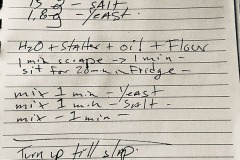 13 g - SAlt
1.8 g - yEASt
H2O + Starter + oil + Flour
1 min scrape -> 1 min -
sit for 20 min Fridge -
mix 1 min - yEast
mix 1 min - SAlt -
mix - 1 min -
Turn up till slap.